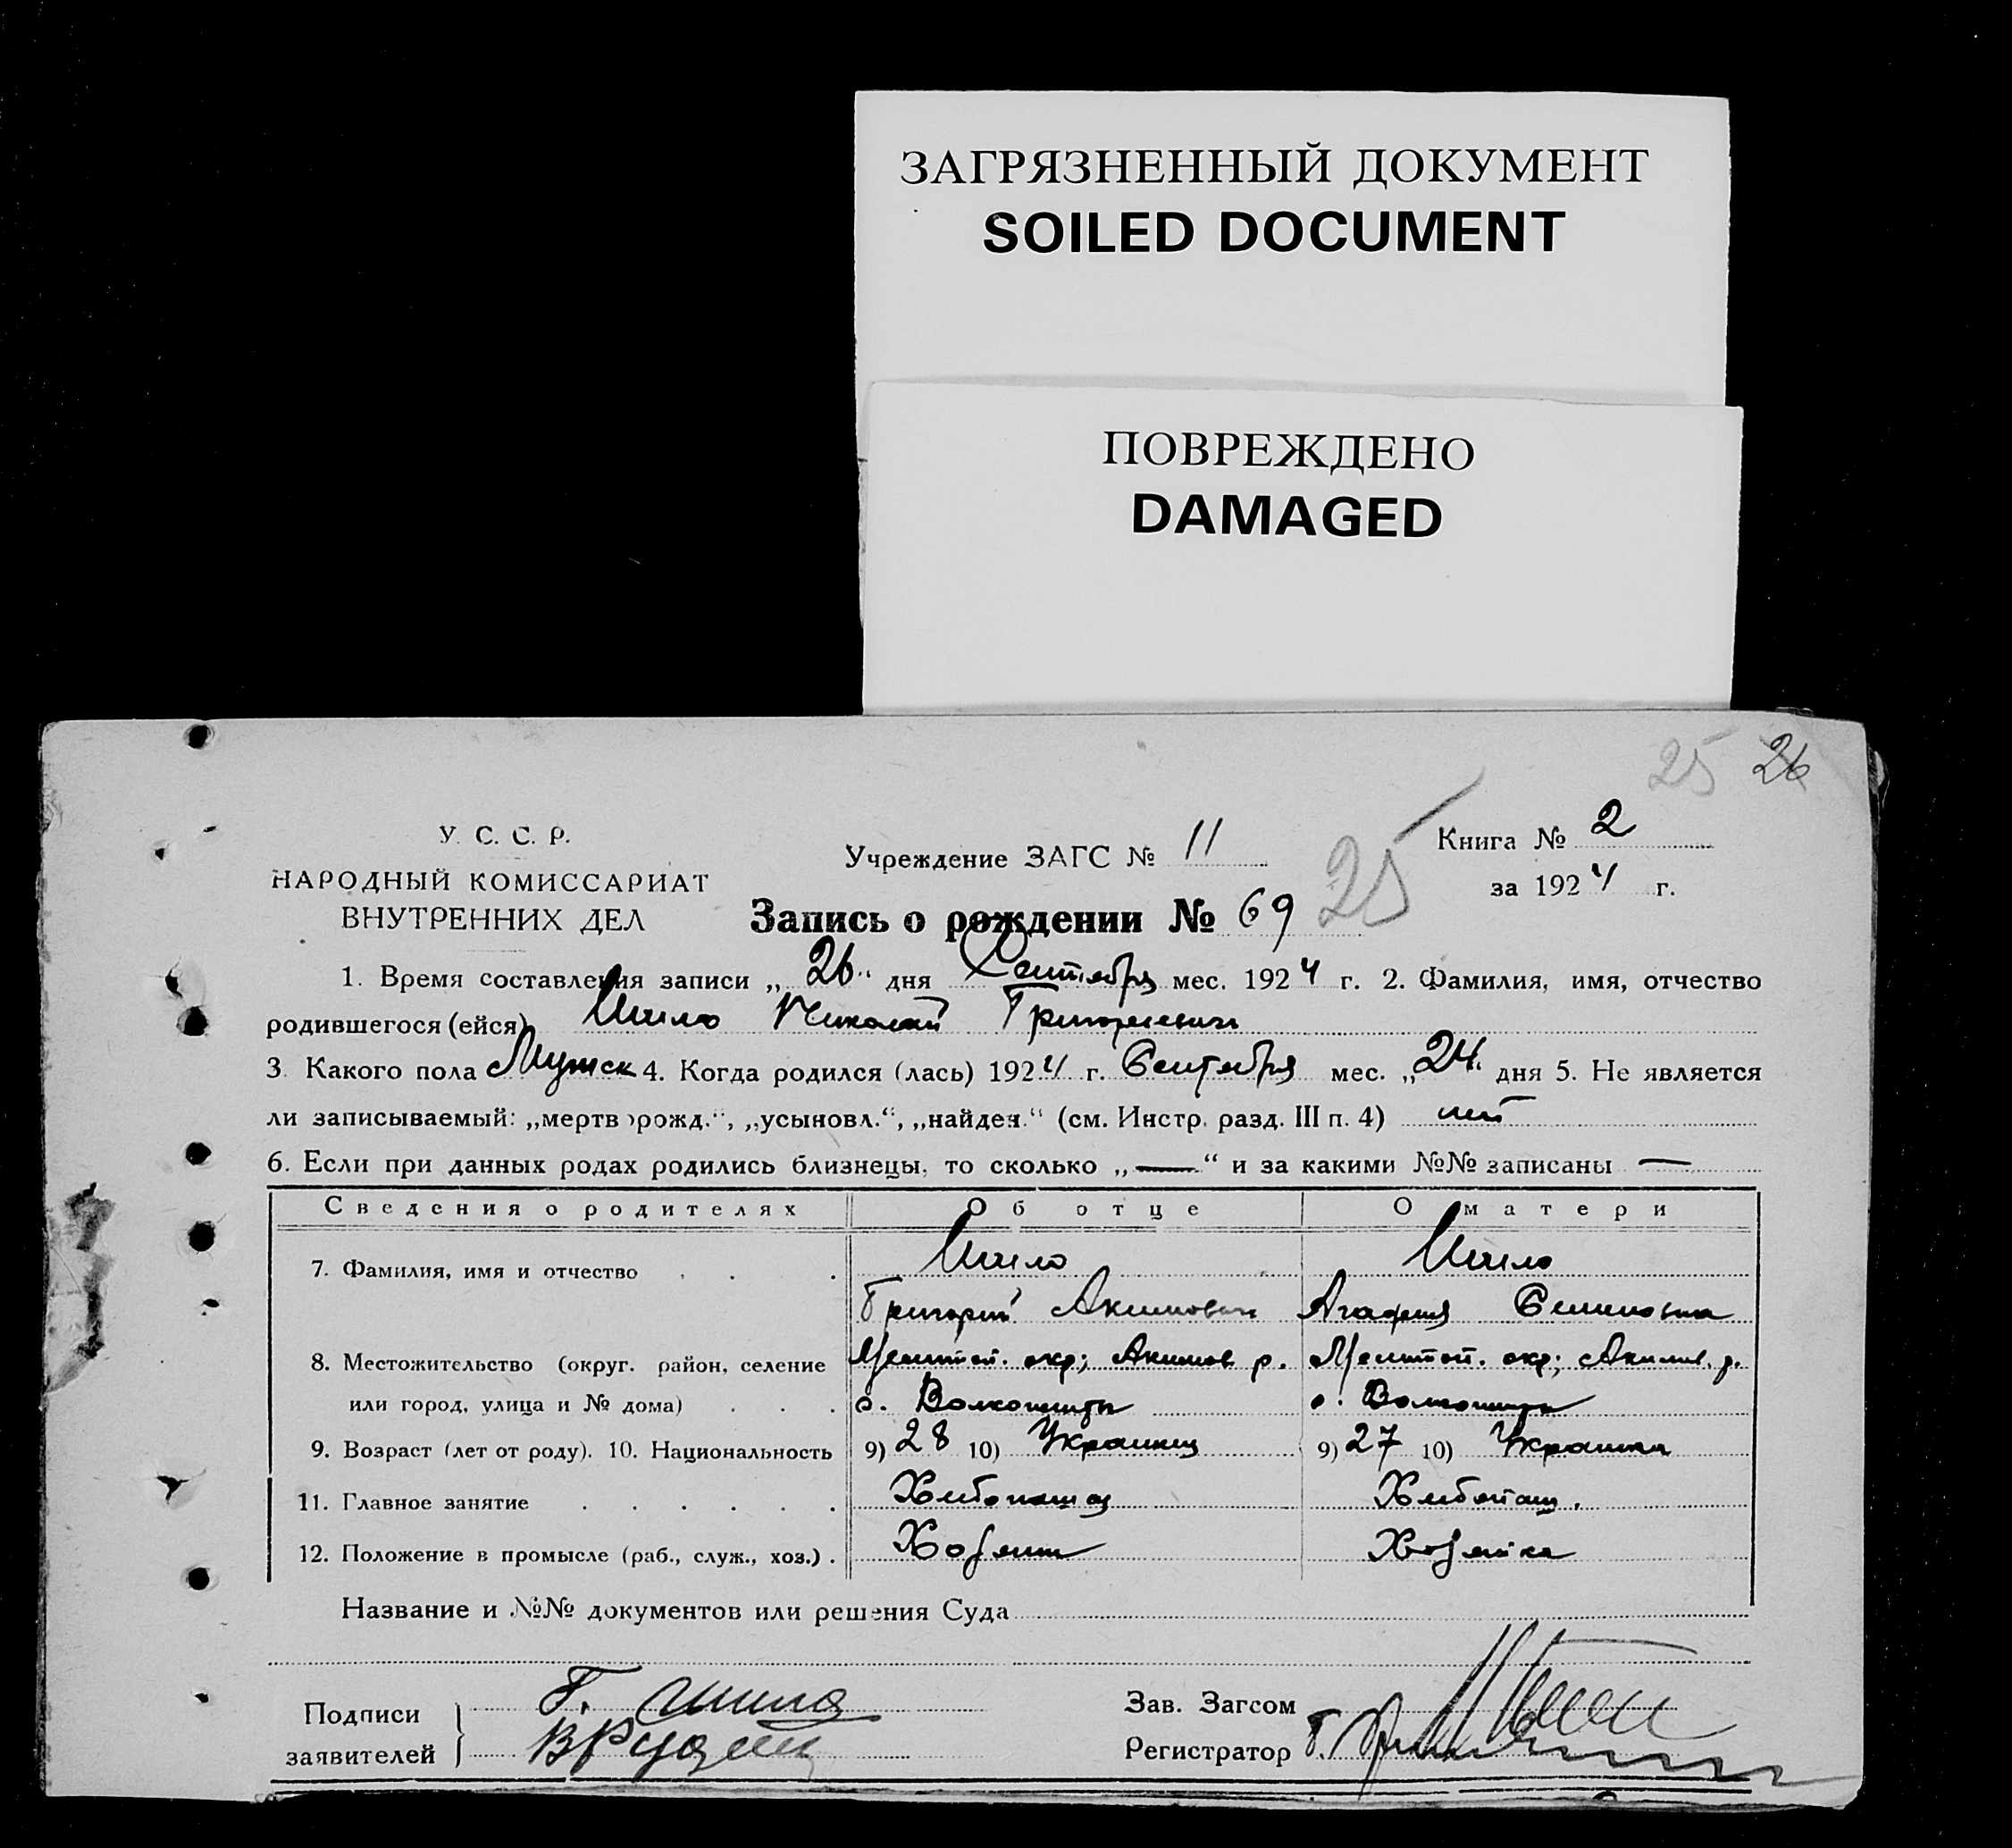 ЗАГРЯЗНЕННЫЙ ДОКУМЕНТ
SOILED DOCUMENT
ПОВРЕЖДЕНО
DAMAGED
25 26
У. С. С. Р.
НАРОДНЫЙ КОМИССАРИАТ
ВНУТРЕННИХ ДЕЛ
Учреждение ЗАГС № 11
25
Книга № 2
за 1924 г.
Запись о рождении № 69
1. Время составления записи „26“ дня Сентября мес. 1924 г. 2. Фамилия, имя, отчество
родившегося (ейся) Шило Николай Григориевич
3. Какого пола Мужск 4. Когда родился (лась) 1924 г. Сентября мес. „24“ дня 5. Не является
ли записываемый: „мертворожд.“, „усыновл.“, „найден.“ (см. Инстр. разд. III п. 4) нет
6. Если при данных родах родились близнецы, то сколько „—“ и за какими №№ записаны —
Сведения о родителях Об отце О матери
7. Фамилия, имя и отчество Шило Шило
Григорий Акимович Агафия Семеновна
8. Местожительство (округ. район, селение Мелитоп. окр; Акимов. р. Мелитоп. окр; Акимов. р.
или город, улица и № дома) с.
9. Возраст (лет от роду). 10. Национальность 9) 28 10) Украинец 9) 27 10) Украинка
11. Главное занятие Хлебопашец Хлебопаш.
12. Положение в промысле (раб., служ., хоз.) Хозяин Хозяйка
Название и №№ документов или решения Суда
Подписи
заявителей
Г. Шило
Зав. Загсом
Регистратор